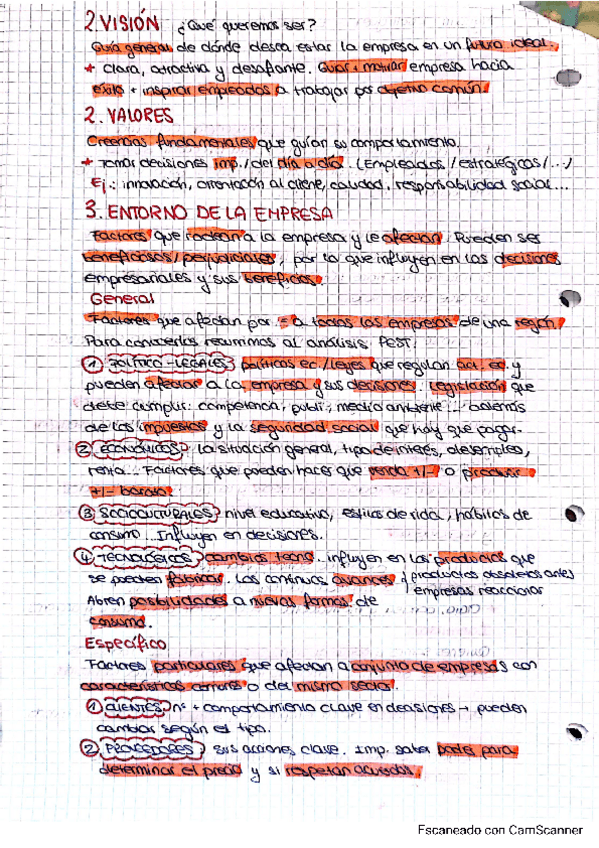 2. VISIÓN ¿Qué queremos ser?
Guía general de dónde desea estar la empresa en un futuro ideal.
* Clara, atractiva y desafiante. Guiar + motivar empresa hacia
éxito + inspirar empleados a trabajar por objetivo común.
2. VALORES
Creencias fundamentales que guían su comportamiento.
* Tomar decisiones imp./del día a día. (Empleados/estratégicos/...)
Ej.: innovación, orientación al cliente, calidad, responsabilidad social...
3. ENTORNO DE LA EMPRESA
Factores que rodean a la empresa y le afectan. Pueden ser
beneficiosos/perjudiciales, por lo que influyen en las decisiones
empresariales y sus beneficios.
General
Factores que afectan por = a todas las empresas de una región.
Para conocerlos recurrimos al análisis PEST.
1 POLÍTICO-LEGALES: políticas ec./leyes que regulan act. ec. y
pueden afectar a la empresa y sus decisiones. Legislación que
debe cumplir: competencia, publi., medio ambiente... además
de los impuestos y la seguridad social que hay que pagar.
2 ECONÓMICOS: la situación general, tipo de interés, desempleo,
renta... Factores que pueden hacer que venda +/- o producir
+/- barato.
3 SOCIOCULTURALES: nivel educativo, estilos de vida, hábitos de
consumo... Influyen en decisiones.
4 TECNOLÓGICOS: cambios tecno. influyen en los productos que
se pueden fabricar. Los continuos avances productos obsoletos antes
empresas reaccionar
Abren posibilidades a nuevas formas de
consumo.
Específico
Factores particulares que afectan a conjunto de empresas con
características comunes o del mismo sector.
1 CLIENTES: nº + comportamiento clave en decisiones → pueden
cambiar según el tipo.
2 PROVEEDORES: sus acciones clave. Imp. saber poder para
determinar el precio y si respetan acuerdos.
Escaneado con CamScanner